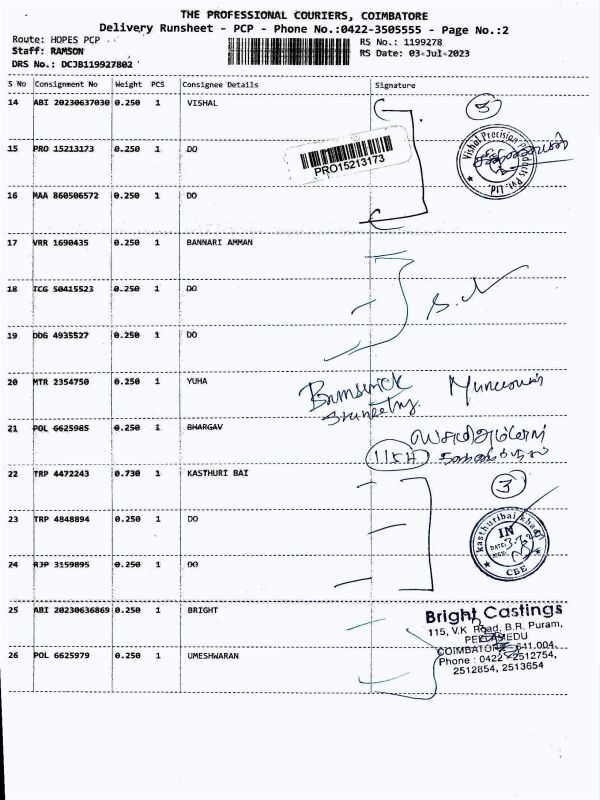 THE PROFESSIONAL COURIERS, COIMBATORE
Delivery Runsheet - PCP - Phone No.:0422-3505555 - Page No.:2
Route: HOPES PCP
RS No.: 1199278
Staff: RAMSON
RS Date: 03-Jul-2023
DRS No.: DCJB119927802
S No Consignment No Weight PCS Consignee Details Signature
14 ABI 20230637030 0.250 1 VISHAL
5
15 PRO 15213173 0.250 1 DO
PRO15213173
Vishal Precision Products Pvt. Ltd.
16 MAA 860506572 0.250 1 DO
17 VRR 1690435 0.250 1 BANNARI AMMAN
18 TCG 50415523 0.250 1 DO
19 DDG 4935527 0.250 1 DO
20 MTR 2354750 0.250 1 YUHA
21 POL 6625985 0.250 1 BHARGAV
22 TRP 4472243 0.730 1 KASTHURI BAI
3
23 TRP 4848894 0.250 1 DO
kasthuribai khadi
IN
DATE:
CBE
24 RJP 3159895 0.250 1 DO
25 ABI 20230636869 0.250 1 BRIGHT
Bright Castings
115, V.K Road, B.R. Puram,
PEELAMEDU
COIMBATORE - 641 004.
26 POL 6625979 0.250 1 UMESHWARAN
Phone : 0422 - 2512754,
2512854, 2513654